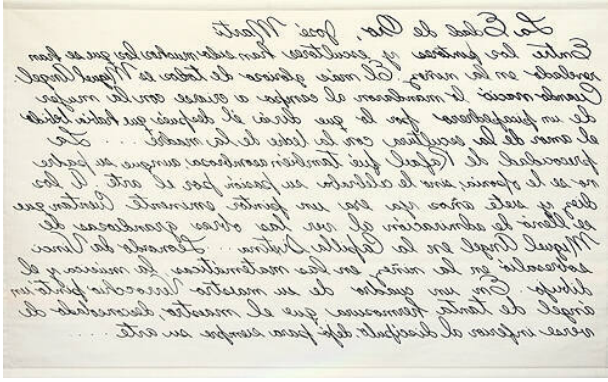 La Edad de Oro, José Martí
Entre los pintores y escultores han sido muchos los que se han
revelado en la niñez. El más glorioso de todos es Miguel Angel.
Cuando nació lo mandaron al campo a criarse con la mujer
de un picapedrero por lo que decía él después que había bebido
el amor de la escultura con la leche de la madre. ... La
precocidad de Rafael fué también asombrosa, aunque su padre
no se le oponía, sino le celebraba su pasión por el arte A los
diez y siete años ya era un pintor eminente Cuentan que
se llenó de admiración al ver las obras grandiosas de
Miguel Angel en la Capilla Sixtina ... Leonardo da Vinci
sobresalió en la niñez, en las matemáticas la música y el
dibujo. En un cuadro de su maestro Verrocchio pintó un
ángel de tanta hermosura que el maestro, desconsolado de
verse inferior al discípulo, dejó para siempre su arte ....